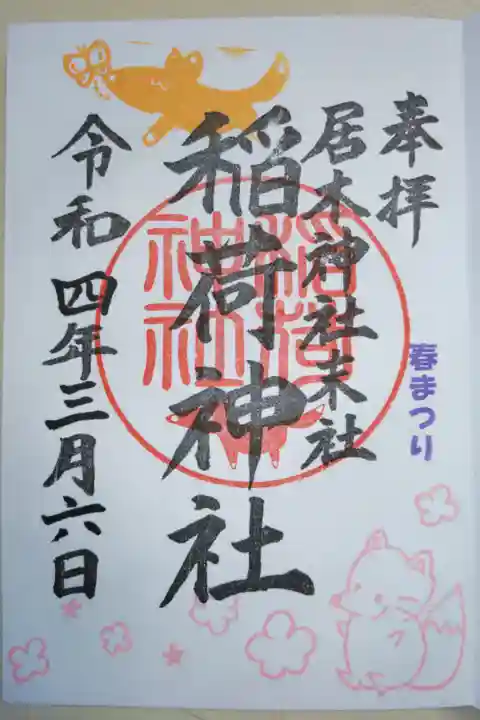 奉拝
春まつり
居木神社末社
稲荷神社
稲荷
神社
令和四年三月六日